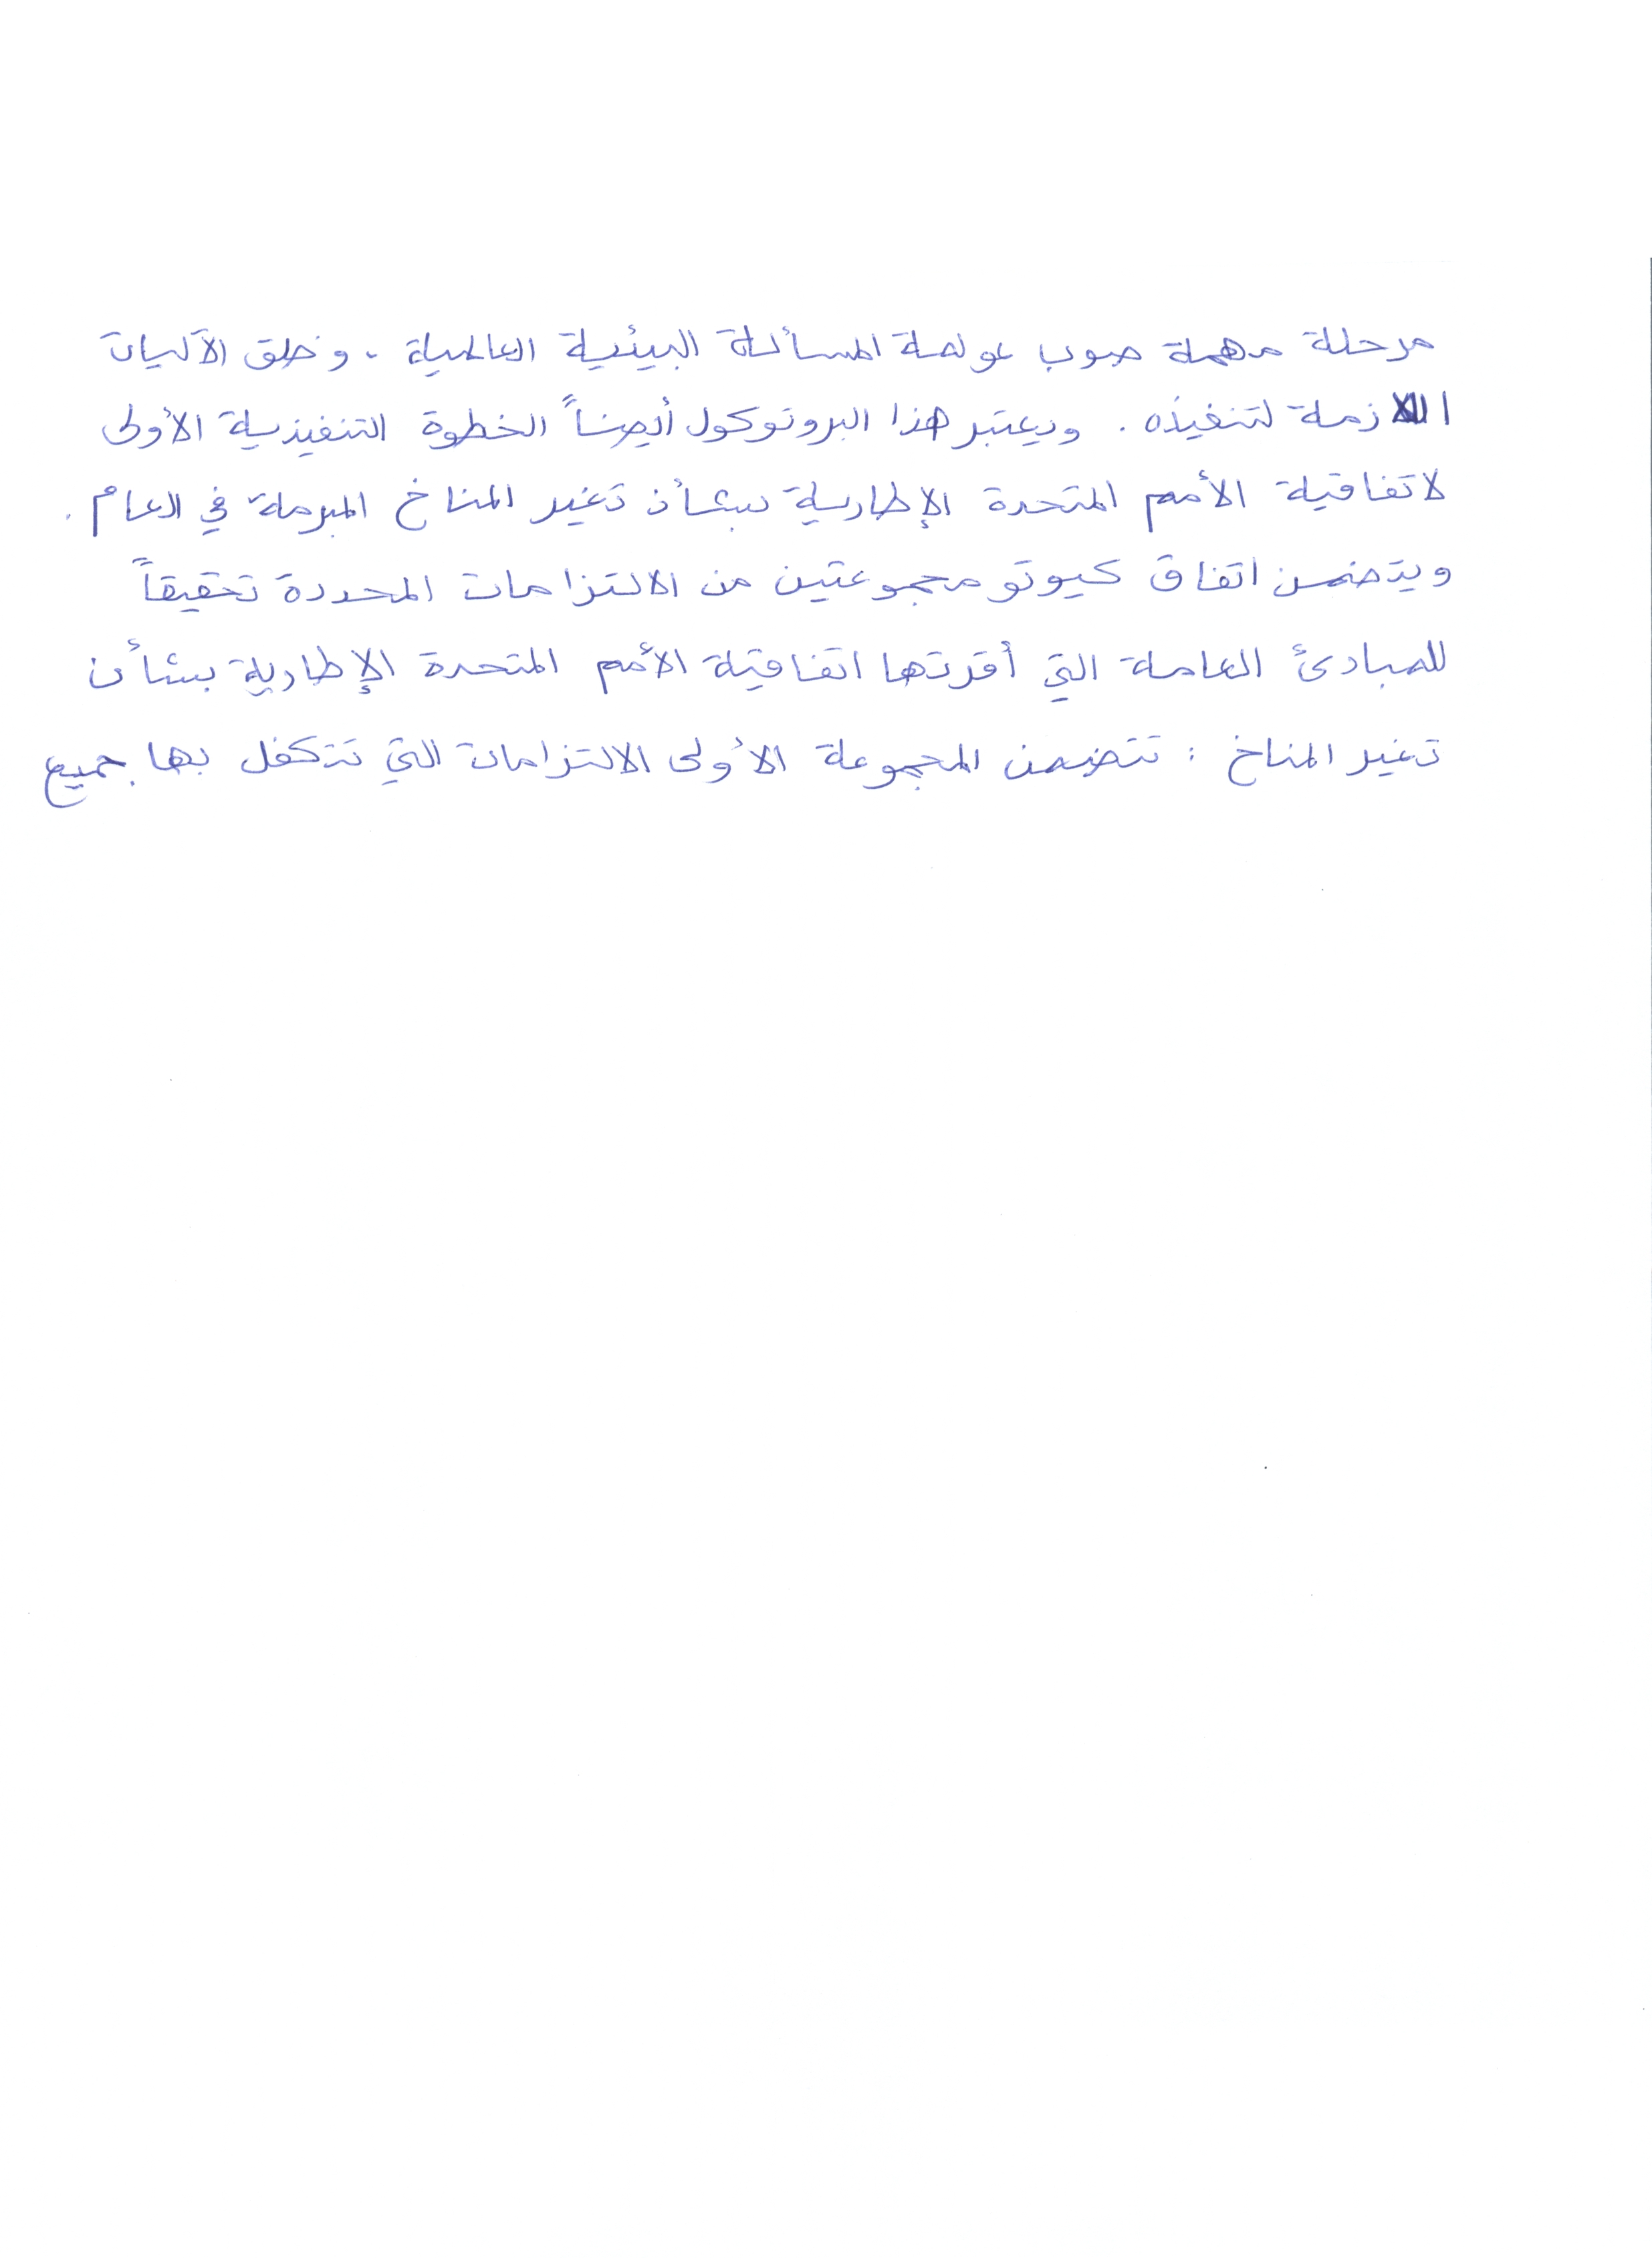 مرحلة مهمة صوب عولمة المسألة البيئية العالمية . وخلق الآليات
اللازمة لتنفيذه . ويعتبر هذا البروتوكول أيضاً الخطوة التنفيذية الأولى
لاتفاقية الأمم المتحدة الإطارية بشأن تغير المناخ المبرمة في العام .
ويتضمن اتفاق كيوتو مجموعتين من الالتزامات المحددة تحقيقاً
للمبادئ العامة التي أقرتها اتفاقية الأمم المتحدة الإطارية بشأن
تغير المناخ : تتضمن المجموعة الأولى الالتزامات التي تتكفل بها جميع